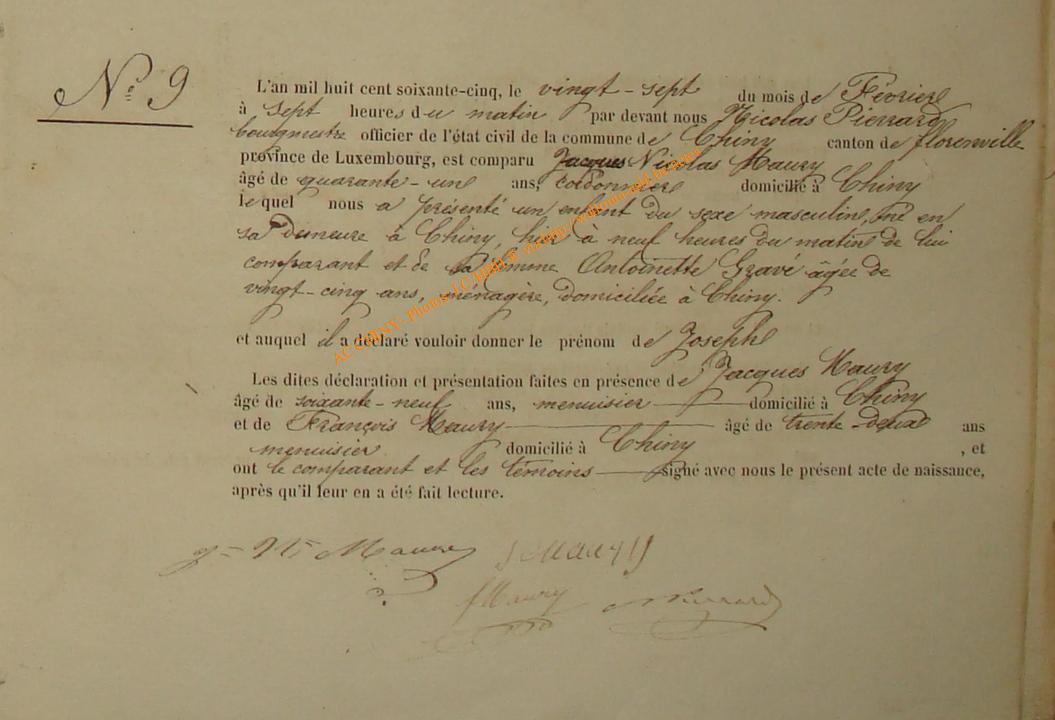 N° 9
L'an mil huit cent soixante-cinq, le vingt-sept du mois de Février
à sept heures du matin par devant nous Nicolas Pierrard
bourgmestre officier de l'état civil de la commune de Chiny canton de florenville
province de Luxembourg, est comparu Jacques Nicolas Maury
âgé de quarante-un ans, cordonnier domicilié à Chiny
lequel nous a présenté un enfant du sexe masculin, né en
sa demeure à Chiny, hier à neuf heures du matin de lui
comparant et de sa femme Antoinette Gravé âgée de
vingt-cinq ans, ménagère, domiciliée à Chiny.
et auquel il a déclaré vouloir donner le prénom de Joseph
Les dites déclaration et présentation faites en présence de Jacques Maury
âgé de soixante-neuf ans, menuisier domicilié à Chiny
et de François Maury âgé de trente-deux ans
menuisier domicilié à Chiny, et
ont le comparant et les témoins signé avec nous le présent acte de naissance,
après qu'il leur en a été fait lecture.
J = Nas Maury J Maury
f Maury N Pierrard
AC CHINY - Photos J.C.